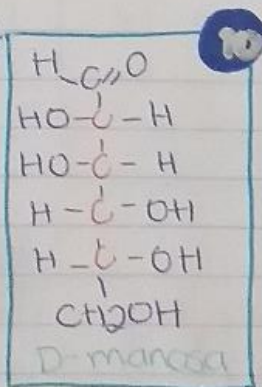 10
H C=O
HO-C-H
HO-C-H
H-C-OH
H-C-OH
CH2OH
D-manosa